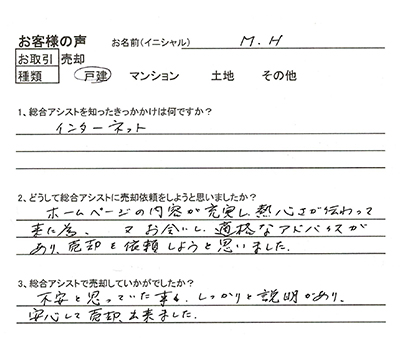 お客様の声 お名前(イニシャル) M.H
お取引 売却
種類 戸建 マンション 土地 その他
1、総合アシストを知ったきっかけは何ですか?
インターネット
2、どうして総合アシストに売却依頼をしようと思いましたか?
ホームページの内容が充実し、熱心さが伝わって
来た為、 お会いし、適格なアドバイスが
あり、売却を依頼しようと思いました。
3、総合アシストで売却していかがでしたか?
不安と思っていた事も、しっかりと説明があり、
安心して売却出来ました。